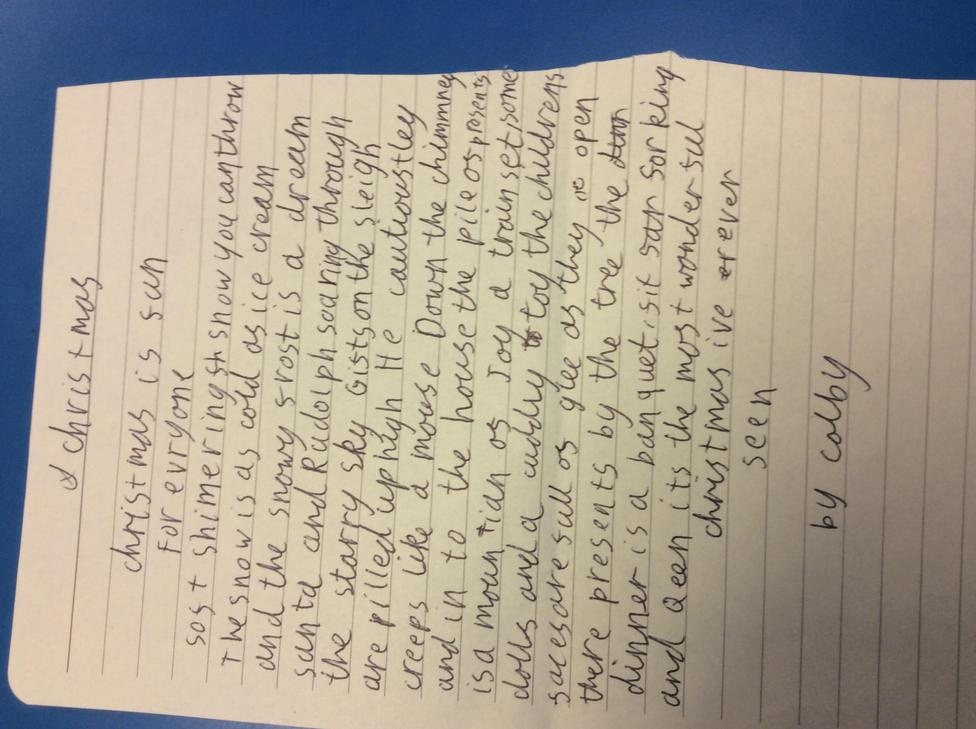 christmas
christmas is fun
For evryone
soft shimering snow you can throw
The snow is as cold as ice cream
and the snowy frost is a dream
santa and Rudolph soaring through
the starry sky Gifts on the sleigh
are pilled up high He cautioustley
creeps like a mouse Down the chimmney
and in to the house the pile of presents
is a mountian of Joy a train set some
dolls and a cuddly toy the childrens
faces are full of glee as they open
there presents by the tree the
dinner is a banquet fit for king
and Qeen its the most wonderful
christmas ive ever
seen
by colby